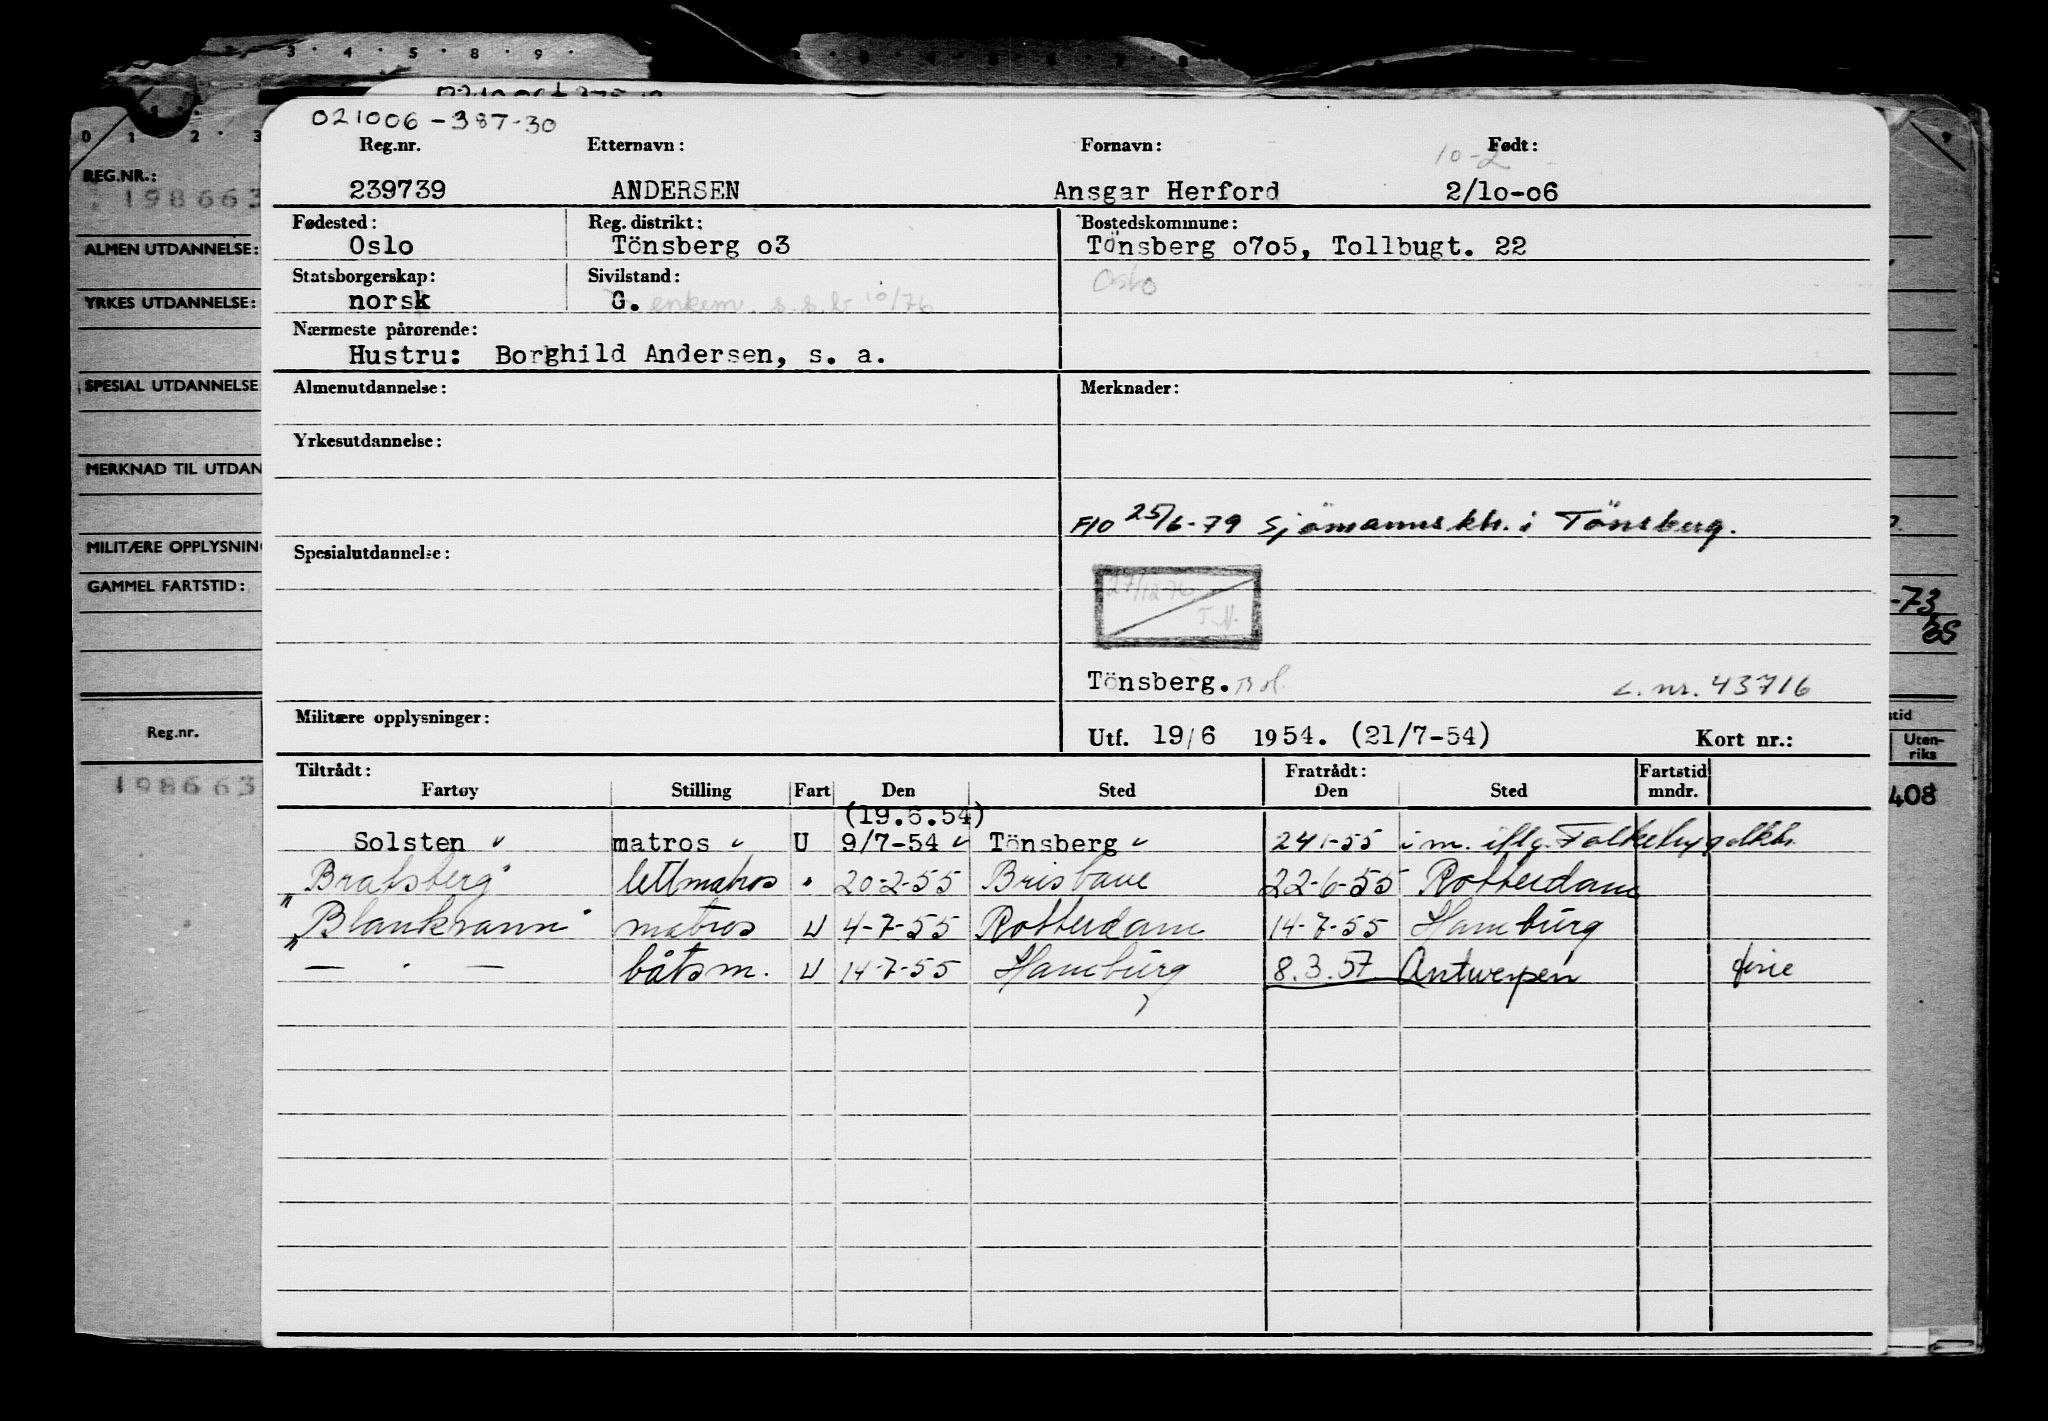 2 · 3 · 4 · 5 · 8 · 9 ·
0 1 2 3
REG.NR.:
198663
ALMEN UTDANNELSE:
YRKES UTDANNELSE:
SPESIAL UTDANNELSE
MERKNAD TIL UTDAN
MILITÆRE OPPLYSNIN
GAMMEL FARTSTID:
Reg.nr.
198663
021006-387-30
Reg.nr. Etternavn: Fornavn: Født:
10-2
239739 ANDERSEN Ansgar Herford 2/10-06
Fødested: Reg. distrikt: Bostedskommune:
Oslo Tönsberg o3 Tönsberg o7o5, Tollbugt. 22
Statsborgerskap: Sivilstand: Oslo
norsk G. enkem. s.s.b 10/76
Nærmeste pårørende:
Hustru: Borghild Andersen, s. a.
Almenutdannelse: Merknader:
Yrkesutdannelse:
F10 25/6-79 Sjömannskh. i Tönsberg.
Spesialutdannelse:
27/12-76
Tönsberg. L.nr. 43716
Militære opplysninger:
Utf. 19/6 1954. (21/7-54) Kort nr.:
Tiltrådt: Fratrådt: Fartstid
Fartøy Stilling Fart Den Sted Den Sted mndr.
(19.6.54)
Solsten matros U 9/7-54 Tönsberg 24 1-55 i m. iflg. Folketrygdkh.
"Bratsberg" lettmatros " 20-2-55 Brisbane 22-6-55 Rotterdam
"Blankvann" matros U 4-7-55 Rotterdam 14-7-55 Hamburg
— · — båtsm. U 14-7-55 Hamburg 8.3.57 Antwerpen ferie
-73
tid
Uten-
riks
408